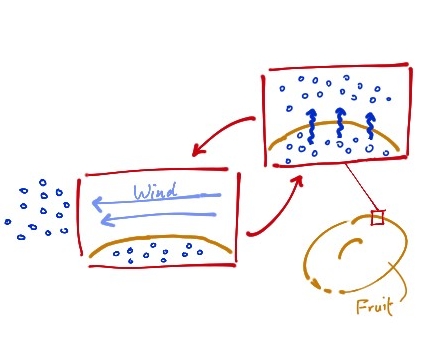 Wind
Fruit